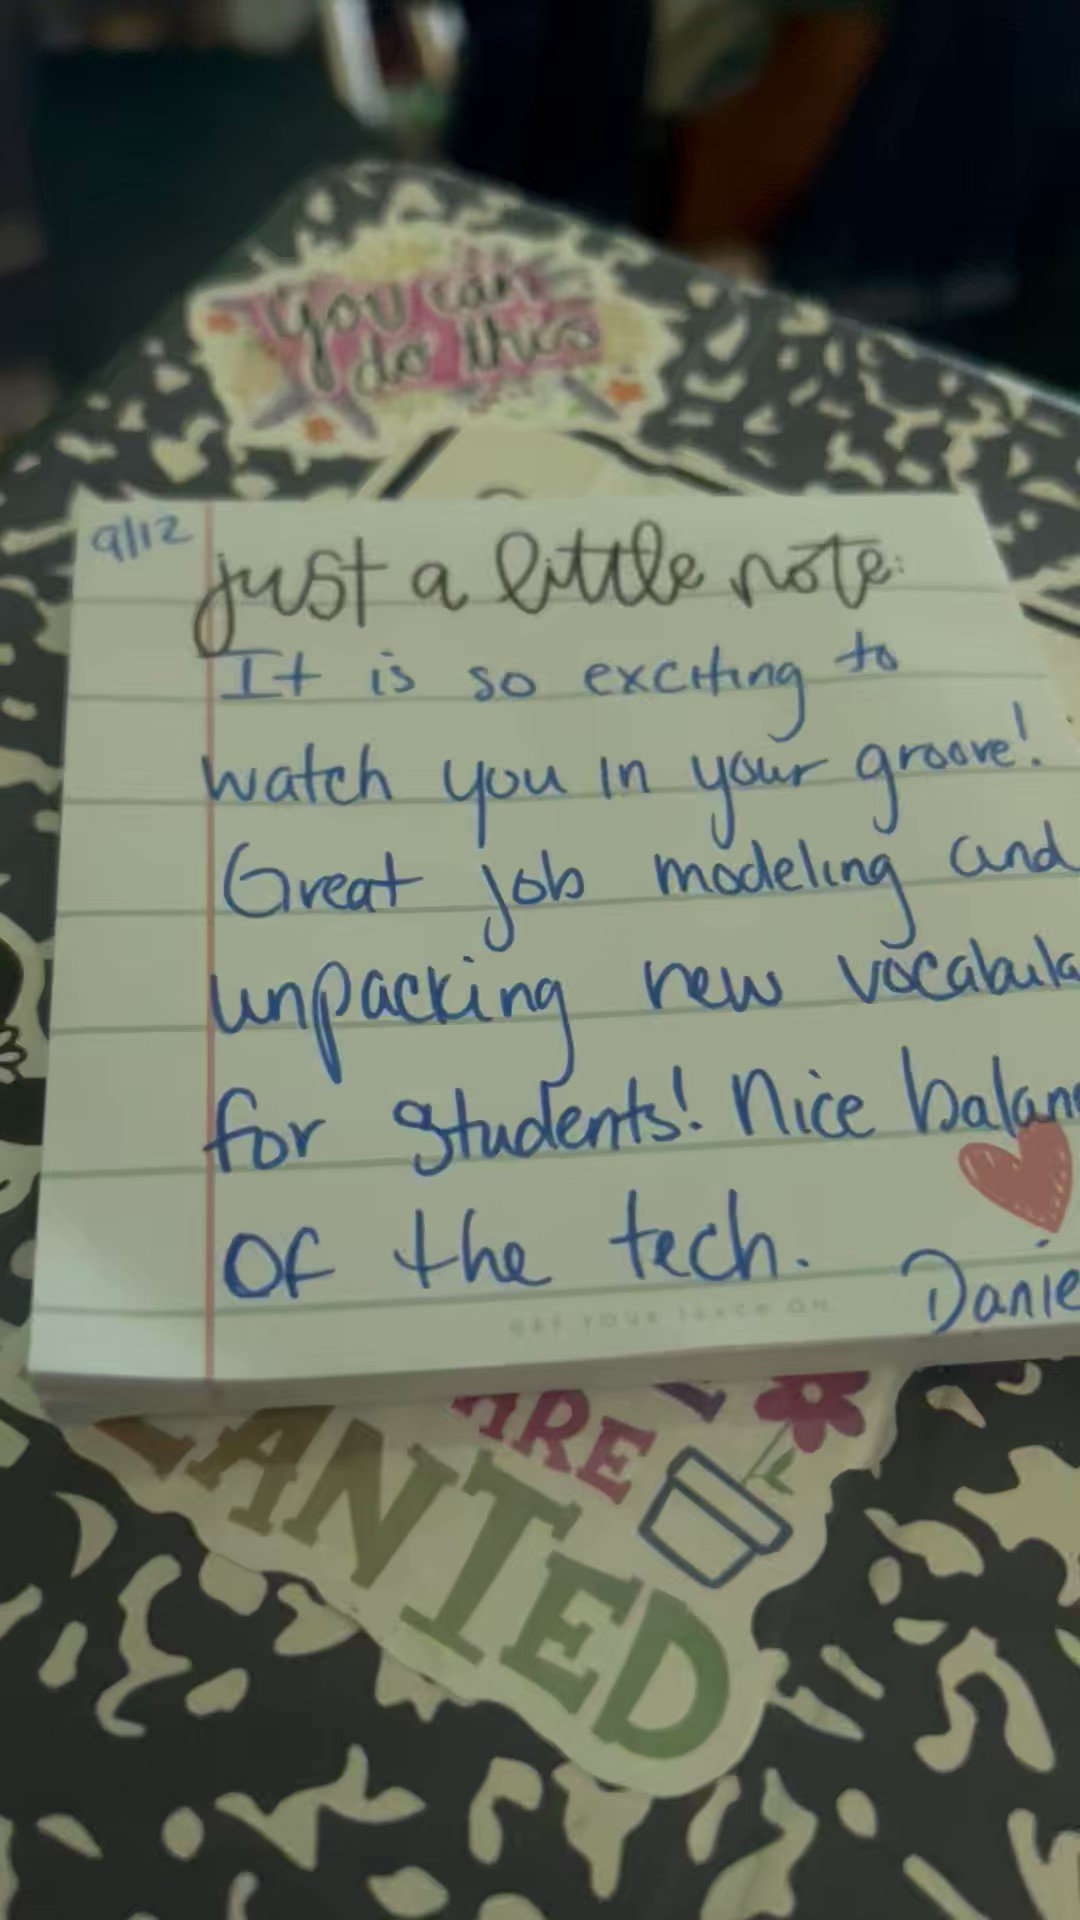 you can
do this
9/12
just a little note:
It is so exciting to
watch you in your groove!
Great job modeling and
unpacking new vocabula
for students! Nice balan
of the tech.
Danie
GET YOUR TEACH ON
ARE
ANTED